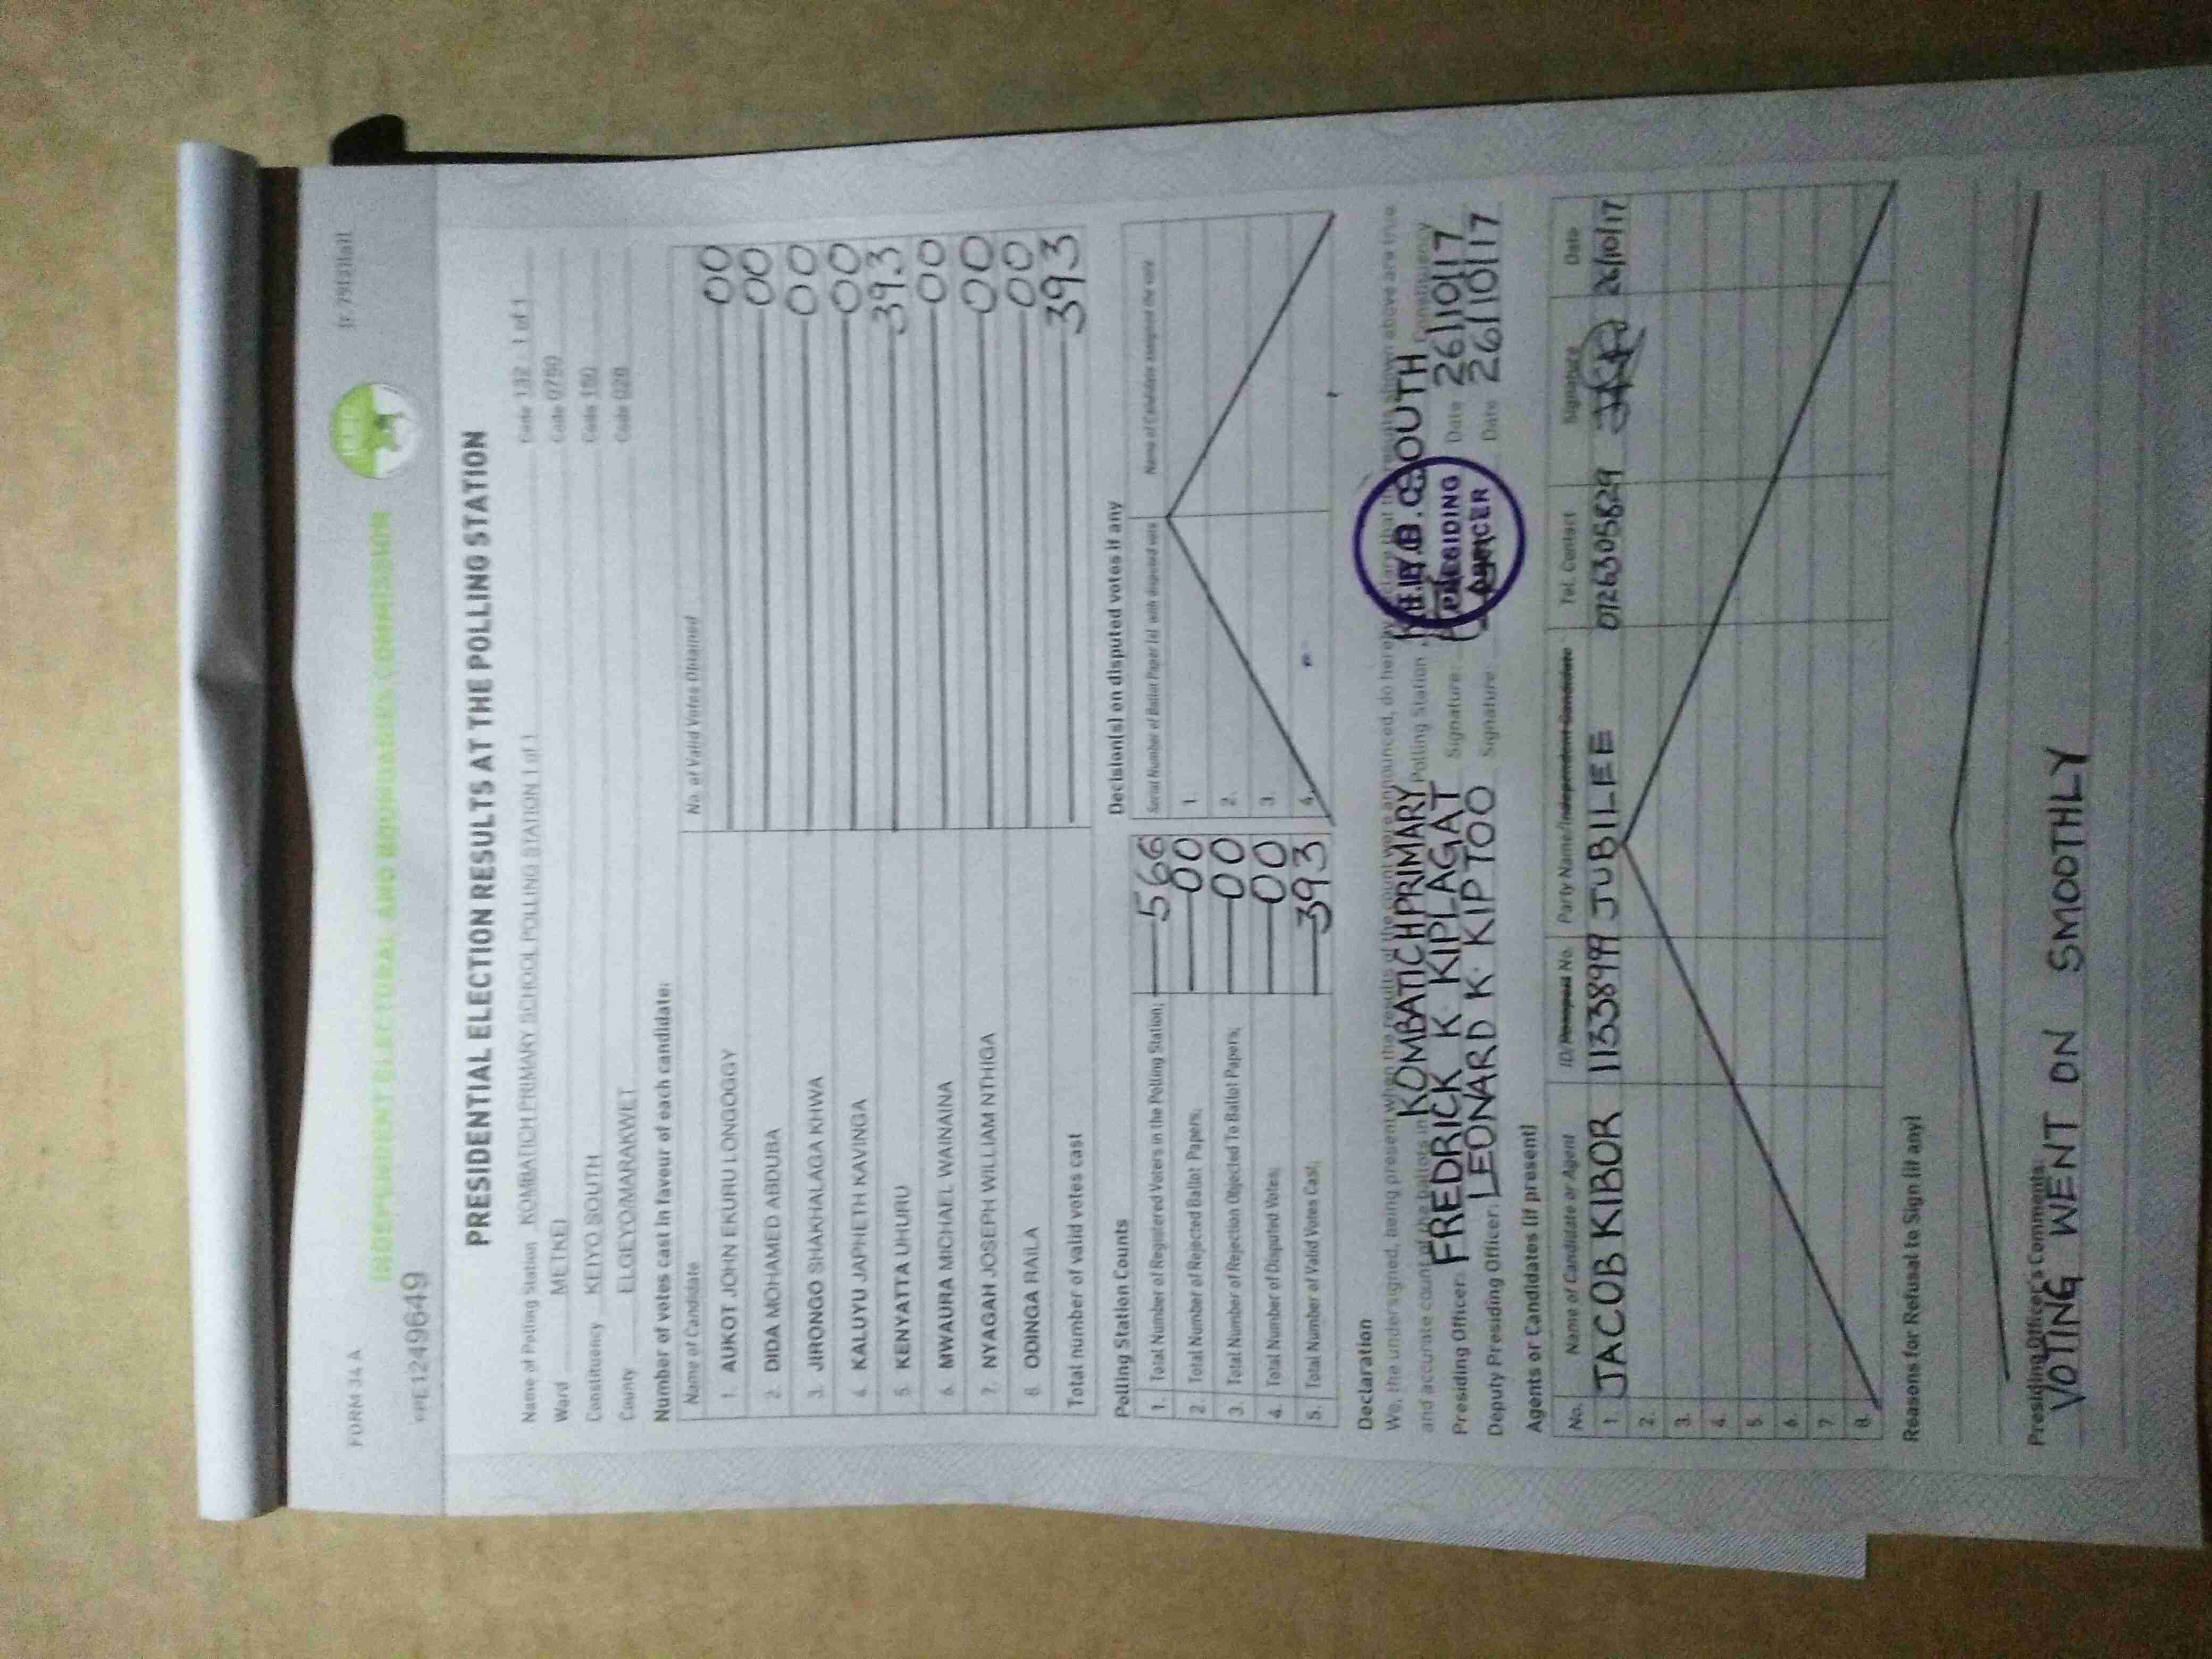 FORM 34 A
INDEPENDENT ELECTORAL AND BOUNDARIES COMMISSION
IEBC
PRESIDENTIAL ELECTION RESULTS AT THE POLLING STATION
Name of Polling Station KOMBATICH PRIMARY SCHOOL POLLING STATION 1 of 1 Code 132 1 of 1
Ward METKEI Code 0750
Constituency KEIYO SOUTH Code 150
County ELGEYO/MARAKWET Code 028
Number of votes cast in favour of each candidate:
Name of Candidate No. of Valid Votes Obtained
1. AUKOT JOHN EKURU LONGOGGY 00
2. DIDA MOHAMED ABDUBA 00
3. JIRONGO SHAKHALAGA KHWA 00
4. KALUYU JAPHETH KAVINGA 00
5. KENYATTA UHURU 393
6. MWAURA MICHAEL WAINAINA 00
7. NYAGAH JOSEPH WILLIAM NTHIGA 00
8. ODINGA RAILA 00
Total number of valid votes cast 393
Polling Station Counts
1. Total Number of Registered Voters in the Polling Station; 566
2. Total Number of Rejected Ballot Papers; 00
3. Total Number of Rejection Objected To Ballot Papers; 00
4. Total Number of Disputed Votes; 00
5. Total Number of Valid Votes Cast; 393
Decision(s) on disputed votes if any
Serial Number of Ballot Paper (s) with disputed vote Name of Candidate assigned the vote
1.
2.
3.
4.
Declaration
We, the undersigned, being present when the results of the count were announced, do hereby declare that the results shown above are true
and accurate count of the ballots in KOMBATICH PRIMARY Polling Station, SOUTH Constituency
Presiding Officer: FREDRICK K. KIPLAGAT Signature: Date 26/10/17
Deputy Presiding Officer: LEONARD K. KIPTOO Signature: Date 26/10/17
PRESIDING
OFFICER
Agents or Candidates (if present)
No. Name of Candidate or Agent ID/Passport No. Party Name/Independent Candidate Tel. Contact Signature Date
1. JACOB KIBOR 11338999 JUBILEE 0726305829 26/10/17
2.
3.
4.
5.
6.
7.
8.
Reasons for Refusal to Sign (if any)
Presiding Officer's Comments:
VOTING WENT ON SMOOTHLY